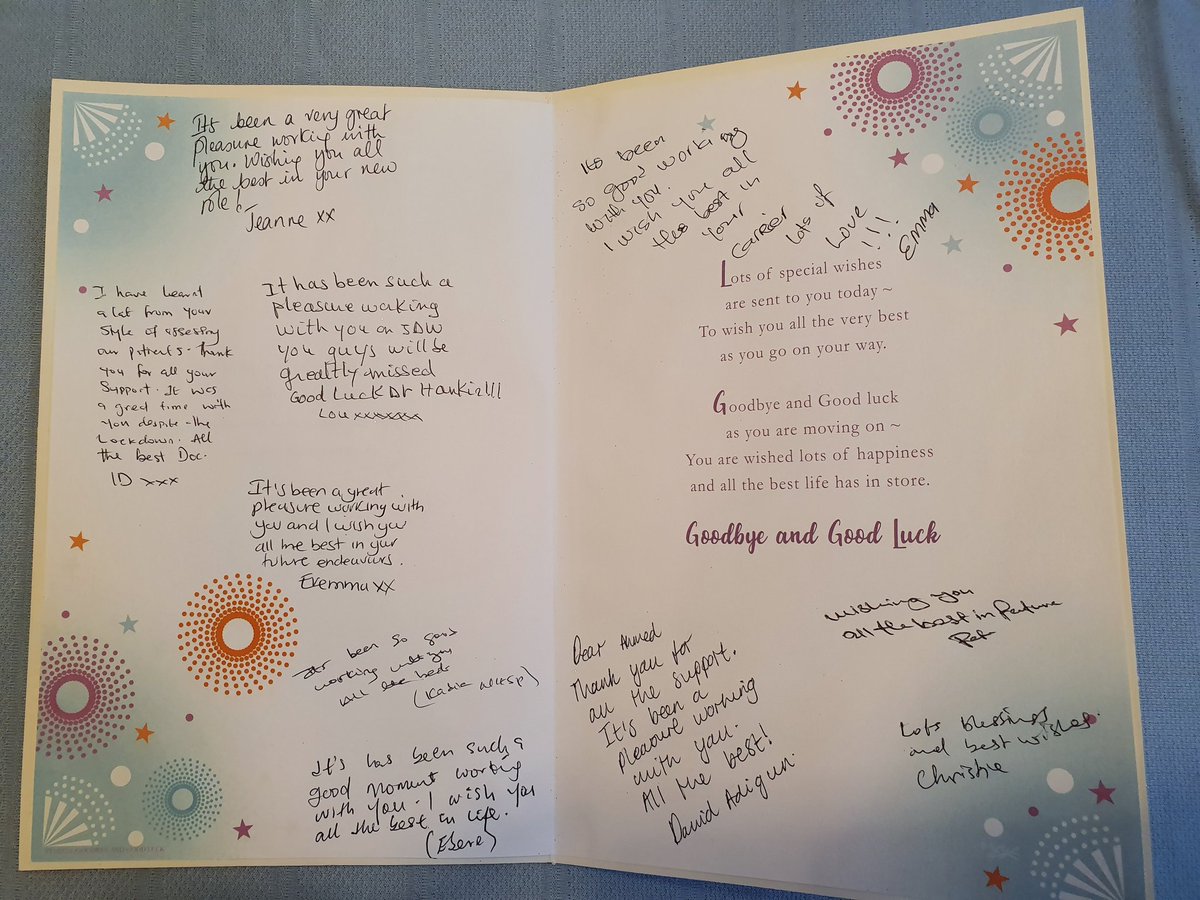 Its been a very great
pleasure working with
you. Wishing you all
the best in your new
role!
Jeanne xx
I have learnt
a lot from your
style of assessing
our patients. Thank
you for all your
support. It was
a great time with
you despite the
Lockdown. All
the best Doc.
ID xxx
It has been such a
pleasure working
with you on JDW
you guys will be
greatly missed
Good Luck Dr
Lou xxxxxxx
It's been a great
pleasure working with
you and I wish you
all the best in your
future endeavours.
Ekemma xx
Its been so good
working with you
all the best
(Katia
It's has been such a
good moment working
with you. I wish you
all the best in life.
(Ebere)
Its been
so good working
with you.
I wish you all
the best in
your
carrier
lots of
Love
!!!
Emma
Lots of special wishes
are sent to you today ~
To wish you all the very best
as you go on your way.
Goodbye and Good luck
as you are moving on ~
You are wished lots of happiness
and all the best life has in store.
Goodbye and Good Luck
Wishing you
all the best in
Pat
Dear Ahmed
Thank you for
all the support.
It's been a
pleasure working
with you.
All the best!
David Adigun.
Lots Blessings
and best wishes.
Christie